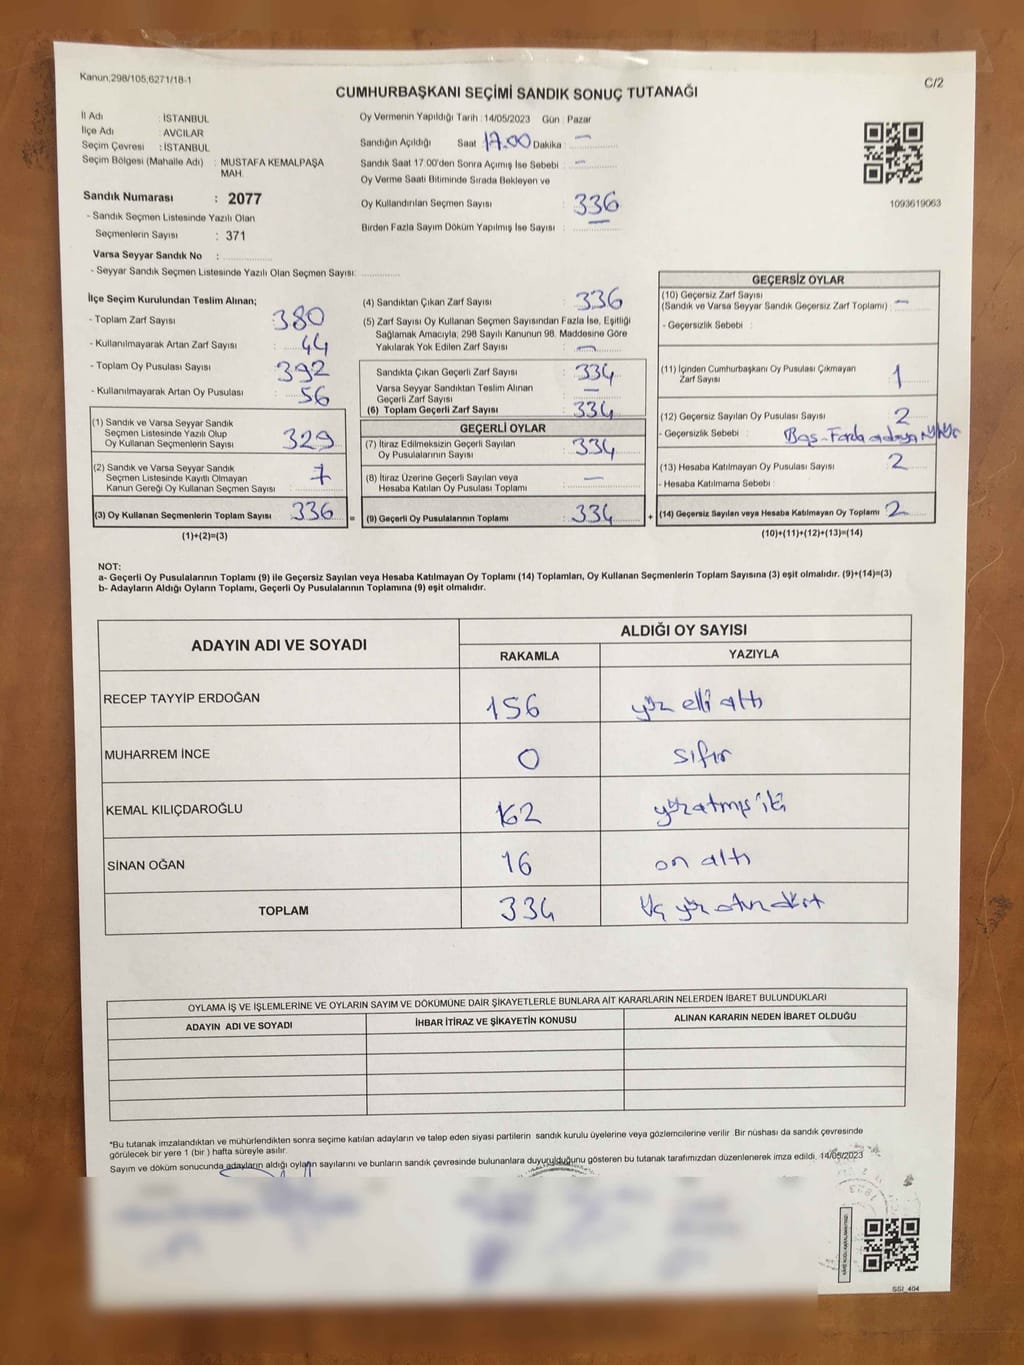 Kanun;298/105;6271/18-1
C/2
CUMHURBAŞKANI SEÇİMİ SANDIK SONUÇ TUTANAĞI
İl Adı : İSTANBUL
İlçe Adı : AVCILAR
Seçim Çevresi : İSTANBUL
Seçim Bölgesi (Mahalle Adı) : MUSTAFA KEMALPAŞA
MAH.
Sandık Numarası : 2077
- Sandık Seçmen Listesinde Yazılı Olan
Seçmenlerin Sayısı : 371
Varsa Seyyar Sandık No :
- Seyyar Sandık Seçmen Listesinde Yazılı Olan Seçmen Sayısı:
Oy Vermenin Yapıldığı Tarih : 14/05/2023 Gün : Pazar
Sandığın Açıldığı Saat 17.00 Dakika : —
Sandık Saat 17:00'den Sonra Açımış İse Sebebi : —
Oy Verme Saati Bitiminde Sırada Bekleyen ve
Oy Kullandırılan Seçmen Sayısı : 336
Birden Fazla Sayım Döküm Yapılmış İse Sayısı : —
1093619063
İlçe Seçim Kurulundan Teslim Alınan;
- Toplam Zarf Sayısı : 380
- Kullanılmayarak Artan Zarf Sayısı : 44
- Toplam Oy Pusulası Sayısı : 392
- Kullanılmayarak Artan Oy Pusulası : 56
(1) Sandık ve Varsa Seyyar Sandık
Seçmen Listesinde Yazılı Olup
Oy Kullanan Seçmenlerin Sayısı : 329
(2) Sandık ve Varsa Seyyar Sandık
Seçmen Listesinde Kayıtlı Olmayan
Kanun Gereği Oy Kullanan Seçmen Sayısı : 7
(3) Oy Kullanan Seçmenlerin Toplam Sayısı : 336
(1)+(2)=(3)
(4) Sandıktan Çıkan Zarf Sayısı : 336
(5) Zarf Sayısı Oy Kullanan Seçmen Sayısından Fazla İse, Eşitliği
Sağlamak Amacıyla; 298 Sayılı Kanunun 98. Maddesine Göre
Yakılarak Yok Edilen Zarf Sayısı : —
Sandıkta Çıkan Geçerli Zarf Sayısı : 334
Varsa Seyyar Sandıktan Teslim Alınan
Geçerli Zarf Sayısı : —
(6) Toplam Geçerli Zarf Sayısı : 334
GEÇERLİ OYLAR
(7) İtiraz Edilmeksizin Geçerli Sayılan
Oy Pusulalarının Sayısı : 334
(8) İtiraz Üzerine Geçerli Sayılan veya
Hesaba Katılan Oy Pusulası Toplamı : —
= (9) Geçerli Oy Pusulalarının Toplamı : 334
GEÇERSİZ OYLAR
(10) Geçersiz Zarf Sayısı
(Sandık ve Varsa Seyyar Sandık Geçersiz Zarf Toplamı) : —
- Geçersizlik Sebebi :
(11) İçinden Cumhurbaşkanı Oy Pusulası Çıkmayan
Zarf Sayısı : 1
(12) Geçersiz Sayılan Oy Pusulası Sayısı : 2
- Geçersizlik Sebebi :
(13) Hesaba Katılmayan Oy Pusulası Sayısı : 2
- Hesaba Katılmama Sebebi :
+ (14) Geçersiz Sayılan veya Hesaba Katılmayan Oy Toplamı : 2
(10)+(11)+(12)+(13)=(14)
NOT:
a- Geçerli Oy Pusulalarının Toplamı (9) ile Geçersiz Sayılan veya Hesaba Katılmayan Oy Toplamı (14) Toplamları, Oy Kullanan Seçmenlerin Toplam Sayısına (3) eşit olmalıdır. (9)+(14)=(3)
b- Adayların Aldığı Oyların Toplamı, Geçerli Oy Pusulalarının Toplamına (9) eşit olmalıdır.
ADAYIN ADI VE SOYADI ALDIĞI OY SAYISI
RAKAMLA YAZIYLA
RECEP TAYYİP ERDOĞAN 156 yüz elli altı
MUHARREM İNCE 0 sıfır
KEMAL KILIÇDAROĞLU 162 yüzatmış iki
SİNAN OĞAN 16 on altı
TOPLAM 334 Üç yüz
OYLAMA İŞ VE İŞLEMLERİNE VE OYLARIN SAYIM VE DÖKÜMÜNE DAİR ŞİKAYETLERLE BUNLARA AİT KARARLARIN NELERDEN İBARET BULUNDUKLARI
ADAYIN ADI VE SOYADI İHBAR İTİRAZ VE ŞİKAYETİN KONUSU ALINAN KARARIN NEDEN İBARET OLDUĞU
*Bu tutanak imzalandıktan ve mühürlendikten sonra seçime katılan adayların ve talep eden siyasi partilerin sandık kurulu üyelerine veya gözlemcilerine verilir. Bir nüshası da sandık çevresinde
görülecek bir yere 1 (bir ) hafta süreyle asılır.
Sayım ve döküm sonucunda adayların aldığı oyların sayılarını ve bunların sandık çevresinde bulunanlara duyurulduğunu gösteren bu tutanak tarafımızdan düzenlenerek imza edildi. 14/05/2023
SSI_404